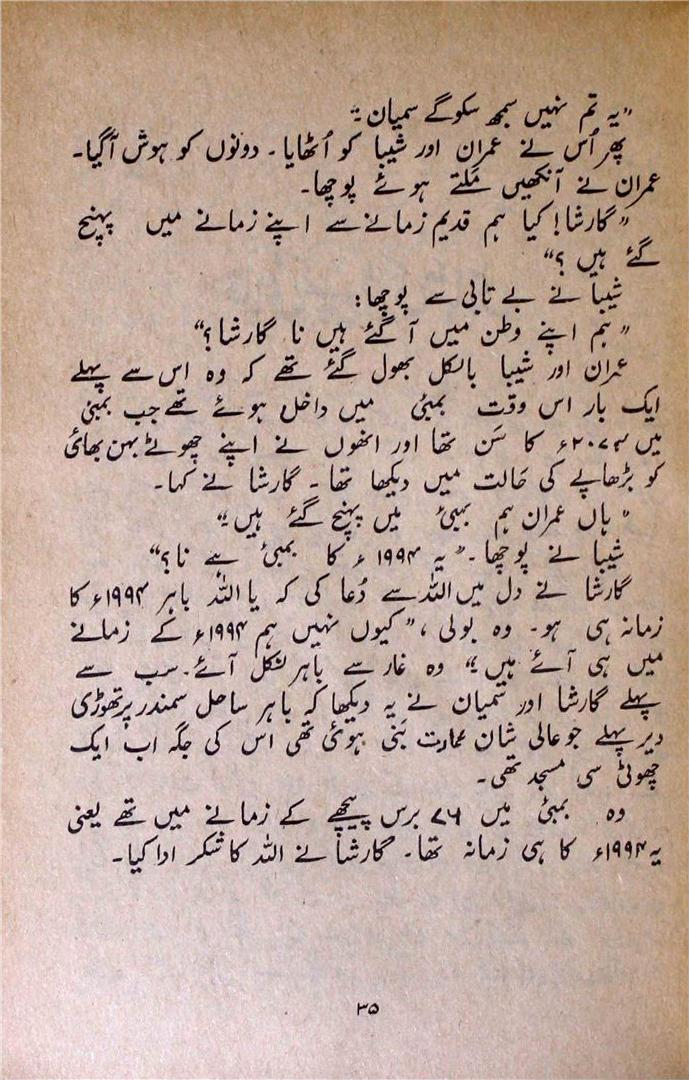 ”یہ تم نہیں سمجھ سکو گے سمیان۔“
پھر اُس نے عمران اور شیبا کو اُٹھایا۔ دونوں کو ہوش آگیا۔
عمران نے آنکھیں مَلتے ہوئے پوچھا۔
”گارشا! کیا ہم قدیم زمانے سے اپنے زمانے میں پہنچ
گئے ہیں؟“
شیبا نے بے تابی سے پوچھا:
”ہم اپنے وطن میں آ گئے ہیں نا گارشا؟“
عمران اور شیبا بالکل بھول گئے تھے کہ وہ اس سے پہلے
ایک بار اس وقت بمبئی میں داخل ہوئے تھے جب بمبئی
میں ۲۰۷۳ء کا سَن تھا اور انھوں نے اپنے چھوٹے بہن بھائی
کو بڑھاپے کی حَالت میں دیکھا تھا۔ گارشا نے کہا۔
”ہاں عمران ہم بمبئی میں پہنچ گئے ہیں۔“
شیبا نے پوچھا۔ ”یہ ۱۹۹۴ء کا بمبئی ہے نا؟“
گارشا نے دل میں اللہ سے دُعا کی کہ یا اللہ باہر ۱۹۹۴ء کا
زمانہ ہی ہو۔ وہ بولی، ”کیوں نہیں ہم ۱۹۹۴ء کے زمانے
میں ہی آئے ہیں۔“ وہ غار سے باہر نکل آئے۔ سب سے
پہلے گارشا اور سمیان نے یہ دیکھا کہ باہر ساحل سمندر پر تھوڑی
دیر پہلے جو عالی شان عمارت بَنی ہوئی تھی اس کی جگہ اب ایک
چھوٹی سی مسجد تھی۔
وہ بمبئی میں ۷۶ برس پیچھے کے زمانے میں تھے یعنی
یہ ۱۹۹۴ء کا ہی زمانہ تھا۔ گارشا نے اللہ کا شکر ادا کیا۔
۳۵